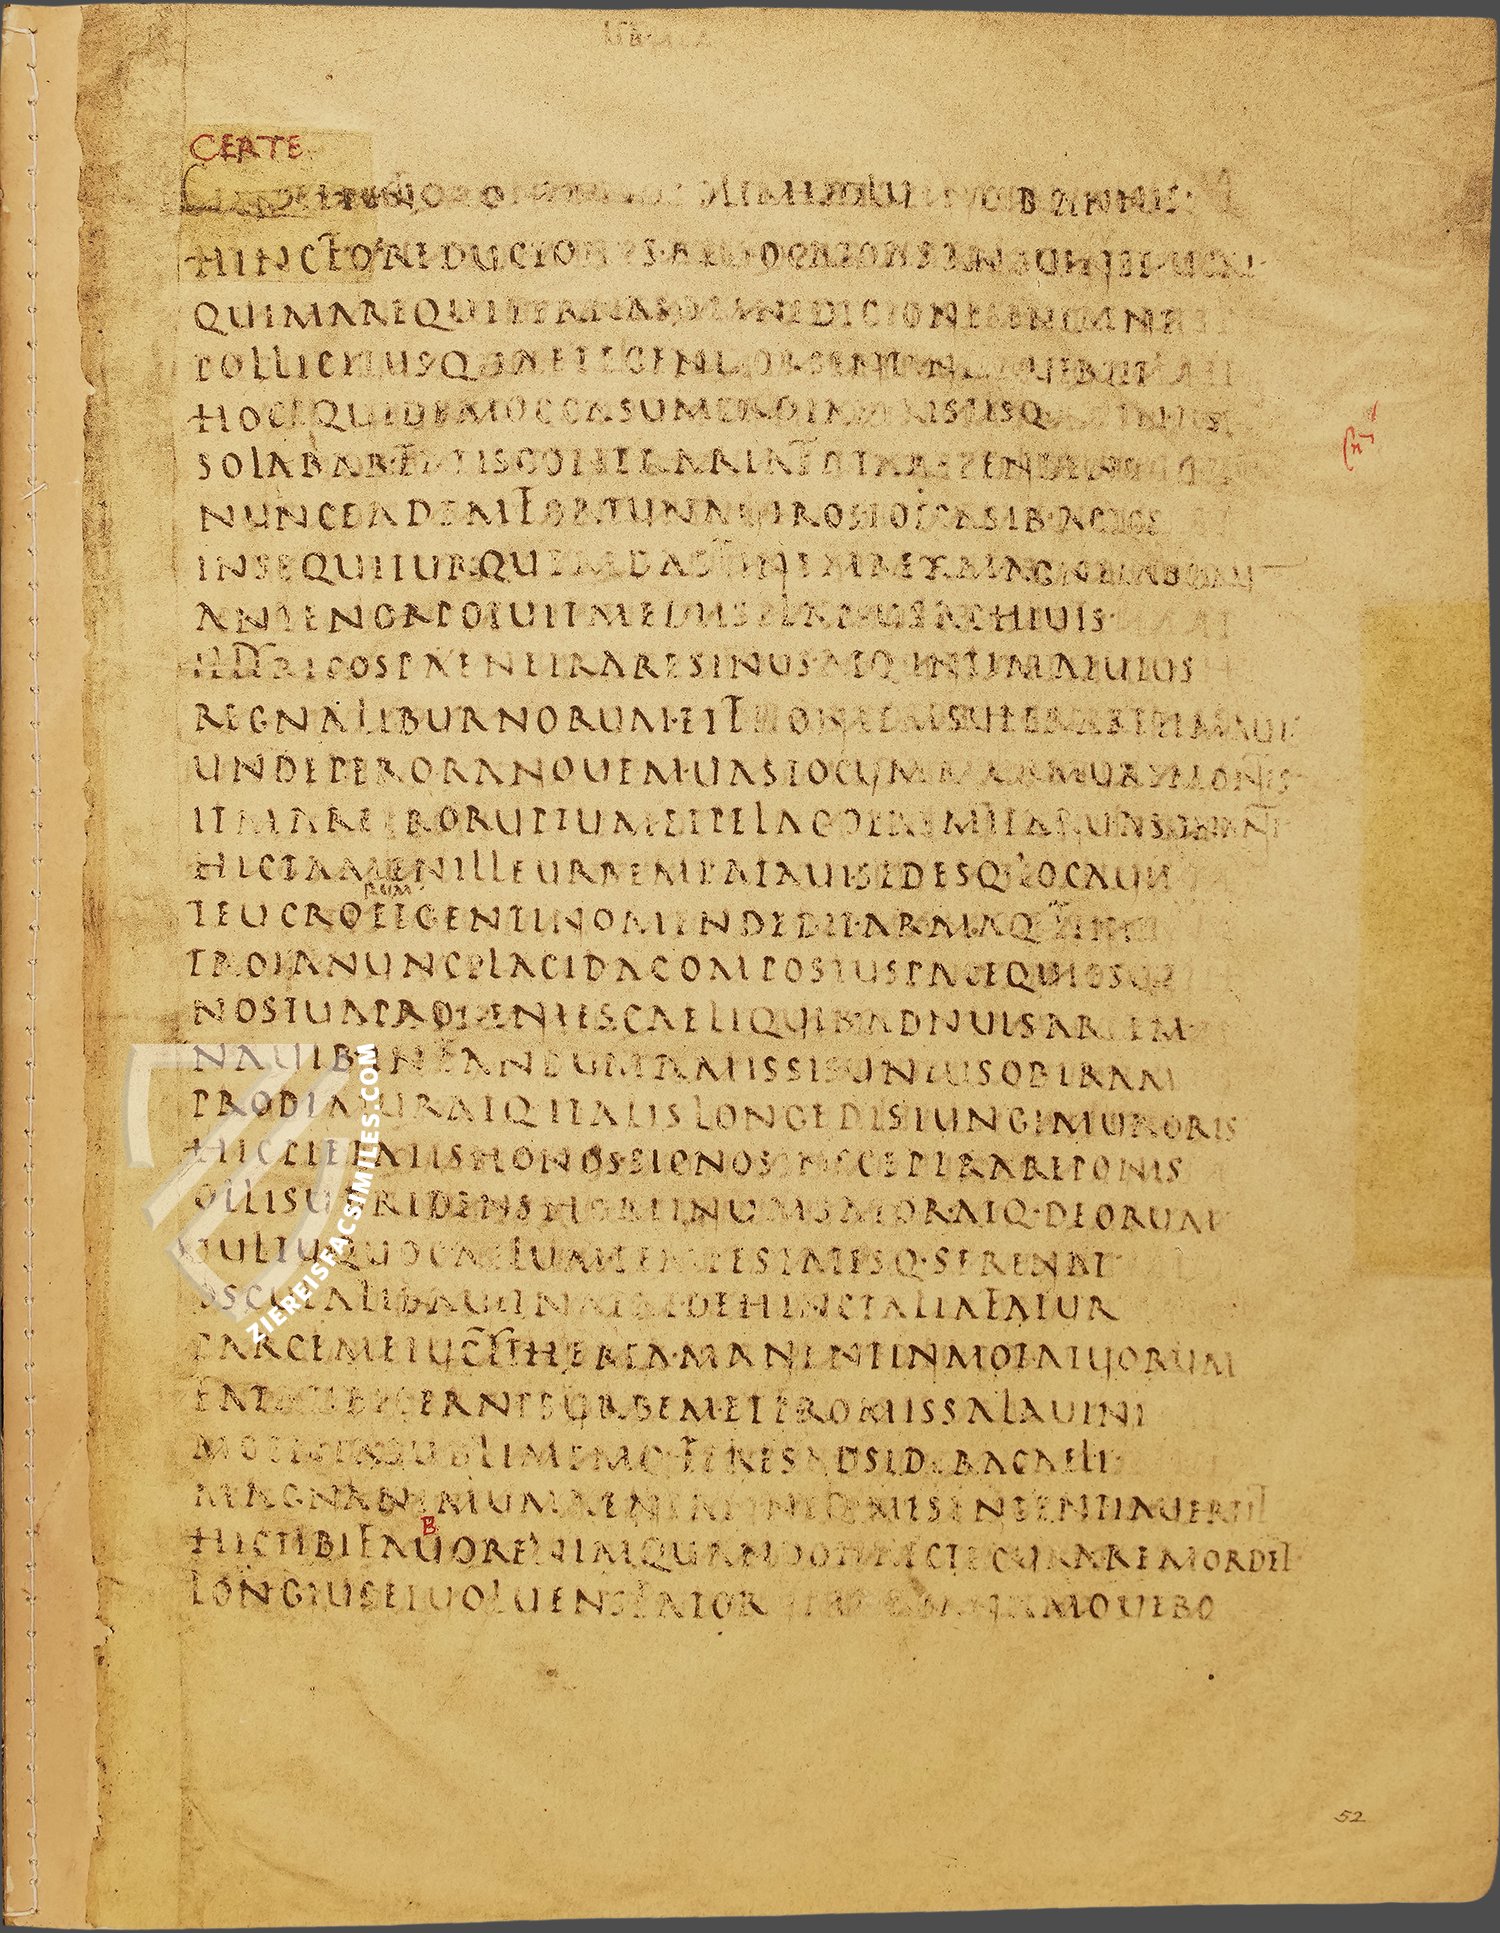 CERTE
OLIM ANNIS
HINCFOREDUCTORES
QUIMAREQUITERRASOMNEDICIONETENERENT
POLLICITUSQUAETEGENITOR
HOCEQUIDEMOCCASUMTROIAETRISTISQ
SOLABARFATISCONTRARIAFATAREPENDENS
NUNCEADEMFORTUNAVIROSTOTCASIB·ACTOS
INSEQUITURQUEMDASFINEMREXMAGNELABORUM
ANTENORPOTUITMEDIISELAPSUSACHIUIS·
ILLYRICOSPAENETRARESINUS·ATQ·INTIMATUTUS
REGNALIBURNORUM·ETFONTEMSUPERARETIMAVI
UNDEPERORANOUEM·UASTOCUMMURMUREMONTIS
ITMAREPRORUPTUMETPELAGOPREMITARUASONANTI
HICTAMENILLEURBEMPATAUISEDESQ·LOCAUIT
RUM
TEUCROETGENTINOMENDEDIT·ARMAQ·FIXIT
TROIANUNCPLACIDACOMPOSTUSPACEQUIESCIT
NOSTUAPROGENIESCAELIQUIB·ADNUISARCEM
NAUIB·INFANDUMAMISSISUNIUSOBIRAM
PRODIMURATQITALISLONGEDISIUNGIMURORIS
HICPIETATISHONOS·SICNOSINSCEPTRAREPONIS
OLLISUBRIDENSHOMINUMSATORATQ·DEORUM
UULTUQUOCAELUMTEMPESTATESQ·SERENAT
OSCULALIBAUITNATAE·DEHINCTALIAFATUR
PARCEMETUCYTHEREA·MANENTINMOTATUORUM
FATATIBICERNESURBEMETPROMISSALAUINI
MOENIASUBLIMEMQ·FERESADSIDERACAELI
MAGNANIMUMAENEANNEQ·MESENTENTIAUERTIT
B
HICTIBIFAUORENIMQUANDOHAECTECURAREMORDET
LONGIUSETUOLUENSFATORUMARCANAMOUEBO
52
ZIEREISFACSIMILES.COM